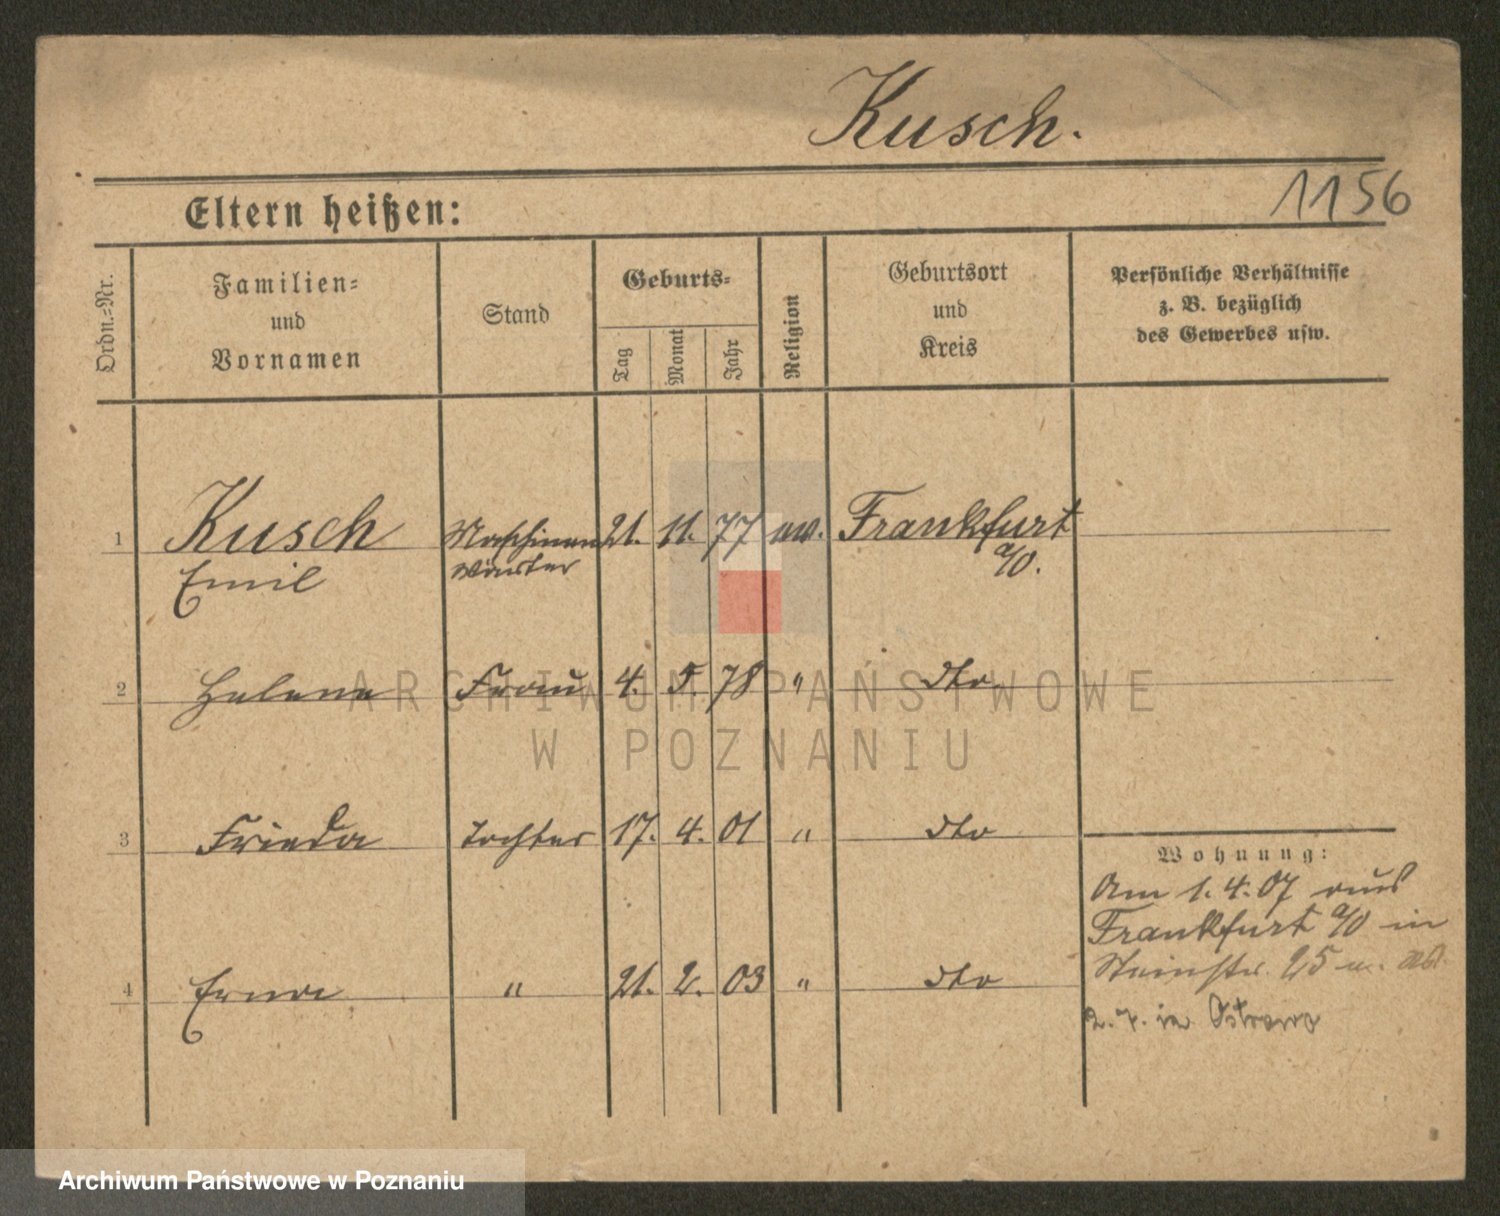 Kusch.
1156
Eltern heißen:
Ordn.=Nr.
Familien=
und
Vornamen
Stand
Geburts=
Tag
Monat
Jahr
Religion
Geburtsort
und
Kreis
Persönliche Verhältnisse
z. B. bezüglich
des Gewerbes usw.
1 Kusch Maschinen 21. 11. 77 ev. Frankfurt
Emil wärter a/O.
2 Helene Frau 4. 5. 78 " dto
ARCHIWUM PAŃSTWOWE
W POZNANIU
3 Frieda Tochter 17. 4. 01 " dto
4 Erna " 21. 2. 03 " dto
Wohnung:
Am 1. 4. 07 aus
Frankfurt a/O in
Steinstr. 25
2. 7. in Ostrowo
Archiwum Państwowe w Poznaniu